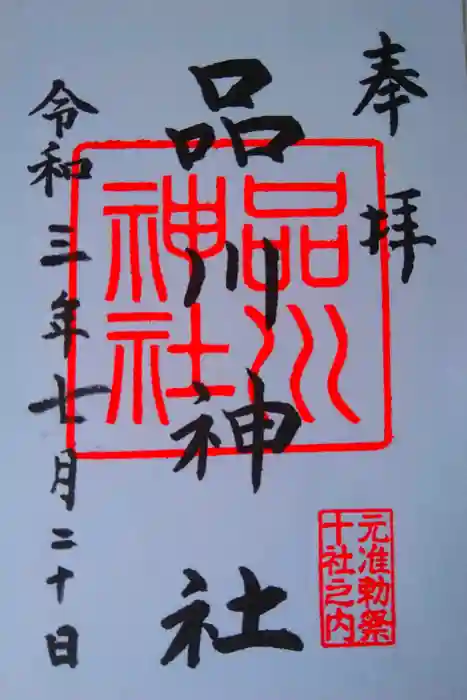 奉拝
品川神社
品川
神社
元准勅祭
十社之内
令和三年七月二十日